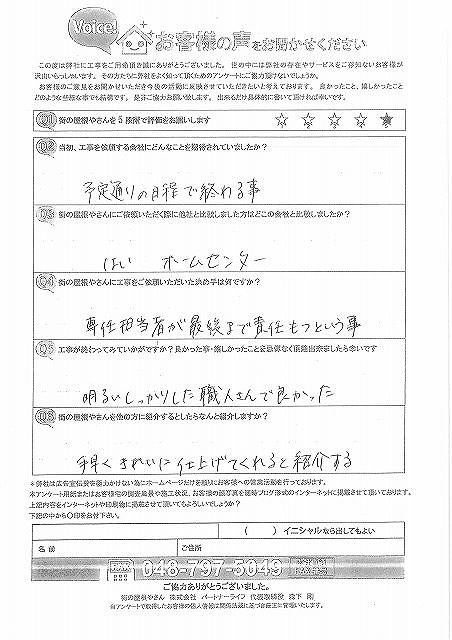 Voice!
お客様の声をお聞かせください
この度は弊社に工事をご用命頂き誠にありがとうございました。世の中には弊社の存在やサービスをご存知ないお客様が
沢山いらっしゃいます。その方たちに弊社をよく知って頂くためのアンケートにご協力頂けないでしょうか。
お客様のご意見をお聞かせいただき今後の活動に反映させていただきたいと考えております。良かったこと、嬉しかったこと
どのような些細な事でも結構です。是非ご協力お願い致します。出来るだけ具体的に書いて頂ければ幸いです。
Q1 街の屋根やさんを5段階で評価をお願いします ☆ ☆ ☆ ☆ ★
Q2 当初、工事を依頼する会社にどんなことを期待されていましたか?
予定通りの日程で終わる事
Q3 街の屋根やさんにご依頼いただく際に他社と比較しました方はどこの会社と比較しましたか?
はい ホームセンター
Q4 街の屋根やさんに工事をご依頼いただいた決め手は何ですか?
専任担当者が最終まで責任もつという事
Q5 工事が終わってみていかがですか?良かった事・嬉しかったことを忌憚なく頂戴出来ましたら幸いです
明るいしっかりした職人さんで良かった
Q6 街の屋根やさんを他の方に紹介するとしたらなんと紹介しますか?
手早くきれいに仕上げてくれると紹介する
*弊社は広告宣伝費を極力かけない為にホームページだけを頼りにお客様への営業活動を行っております。
本アンケート用紙またはお客様宅の調査風景や施工状況、お客様の顔写真を随時ブログ形式のインターネットに掲載させて頂いております。
上記内容をインターネットや印刷物に掲載させて頂いてもよろしいでしょうか?
下記の中から○印をお付下さい。
( )イニシャルなら出してもよい
名前
ご住所
048-797-5043
ご協力ありがとうございました。
街の屋根やさん 株式会社 パートナーライフ 代表取締役 森下 剛
当アンケートで取得したお客様の個人情報は関係法規に基づき厳正に管理いたします。